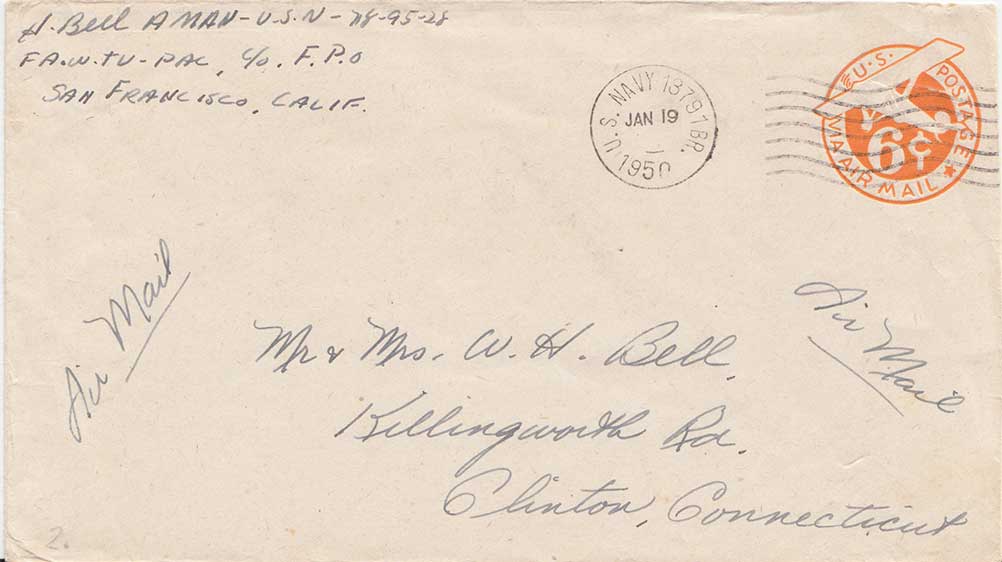 H. Bell AMAN-U.S.N-718-95-28
FA.W.TU-PAC, c/o. F.P.O
SAN FRANCISCO, CALIF.
U.S. NAVY 13791 BR.
JAN 19
1950
U.S. POSTAGE
6¢
VIA AIR MAIL
Air Mail
Air Mail
Mr & Mrs. W. H. Bell.
Killingworth Rd.
Clinton, Connecticut
2.